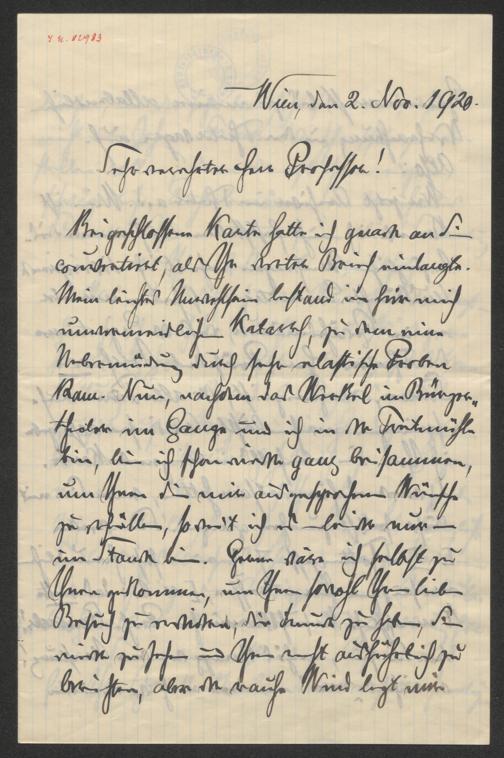 Wien, den 2. Nov. 1920.
Sehr verehrter Herr Professor!
Beigeschlossene Karte hatte ich gerade an Sie
couvertiert, als Ihr werter Brief einlangte.
Mein leichtes Unwohlsein bestand im für mich
unvermeidlichen Katarrh, zu dem eine
Uebermüdung durch sehr elastische Proben
kam. Nun, nachdem das Werkel im Bürger-
theater im Gange und ich in der Tretmühle
bin, bin ich schon wieder ganz beisammen,
um Ihnen die mir ausgesprochenen Wünsche
zu erfüllen, soweit ich es – leider nur –
im Stande bin. Gerne wäre ich selbst zu
Ihnen gekommen, um Ihnen sowohl Ihren lieben
Besuch zu erwidern, die Freude zu haben, Sie
wieder zu sehen und Ihnen recht ausführlich zu
berichten, aber der rauhe Wind legt mir